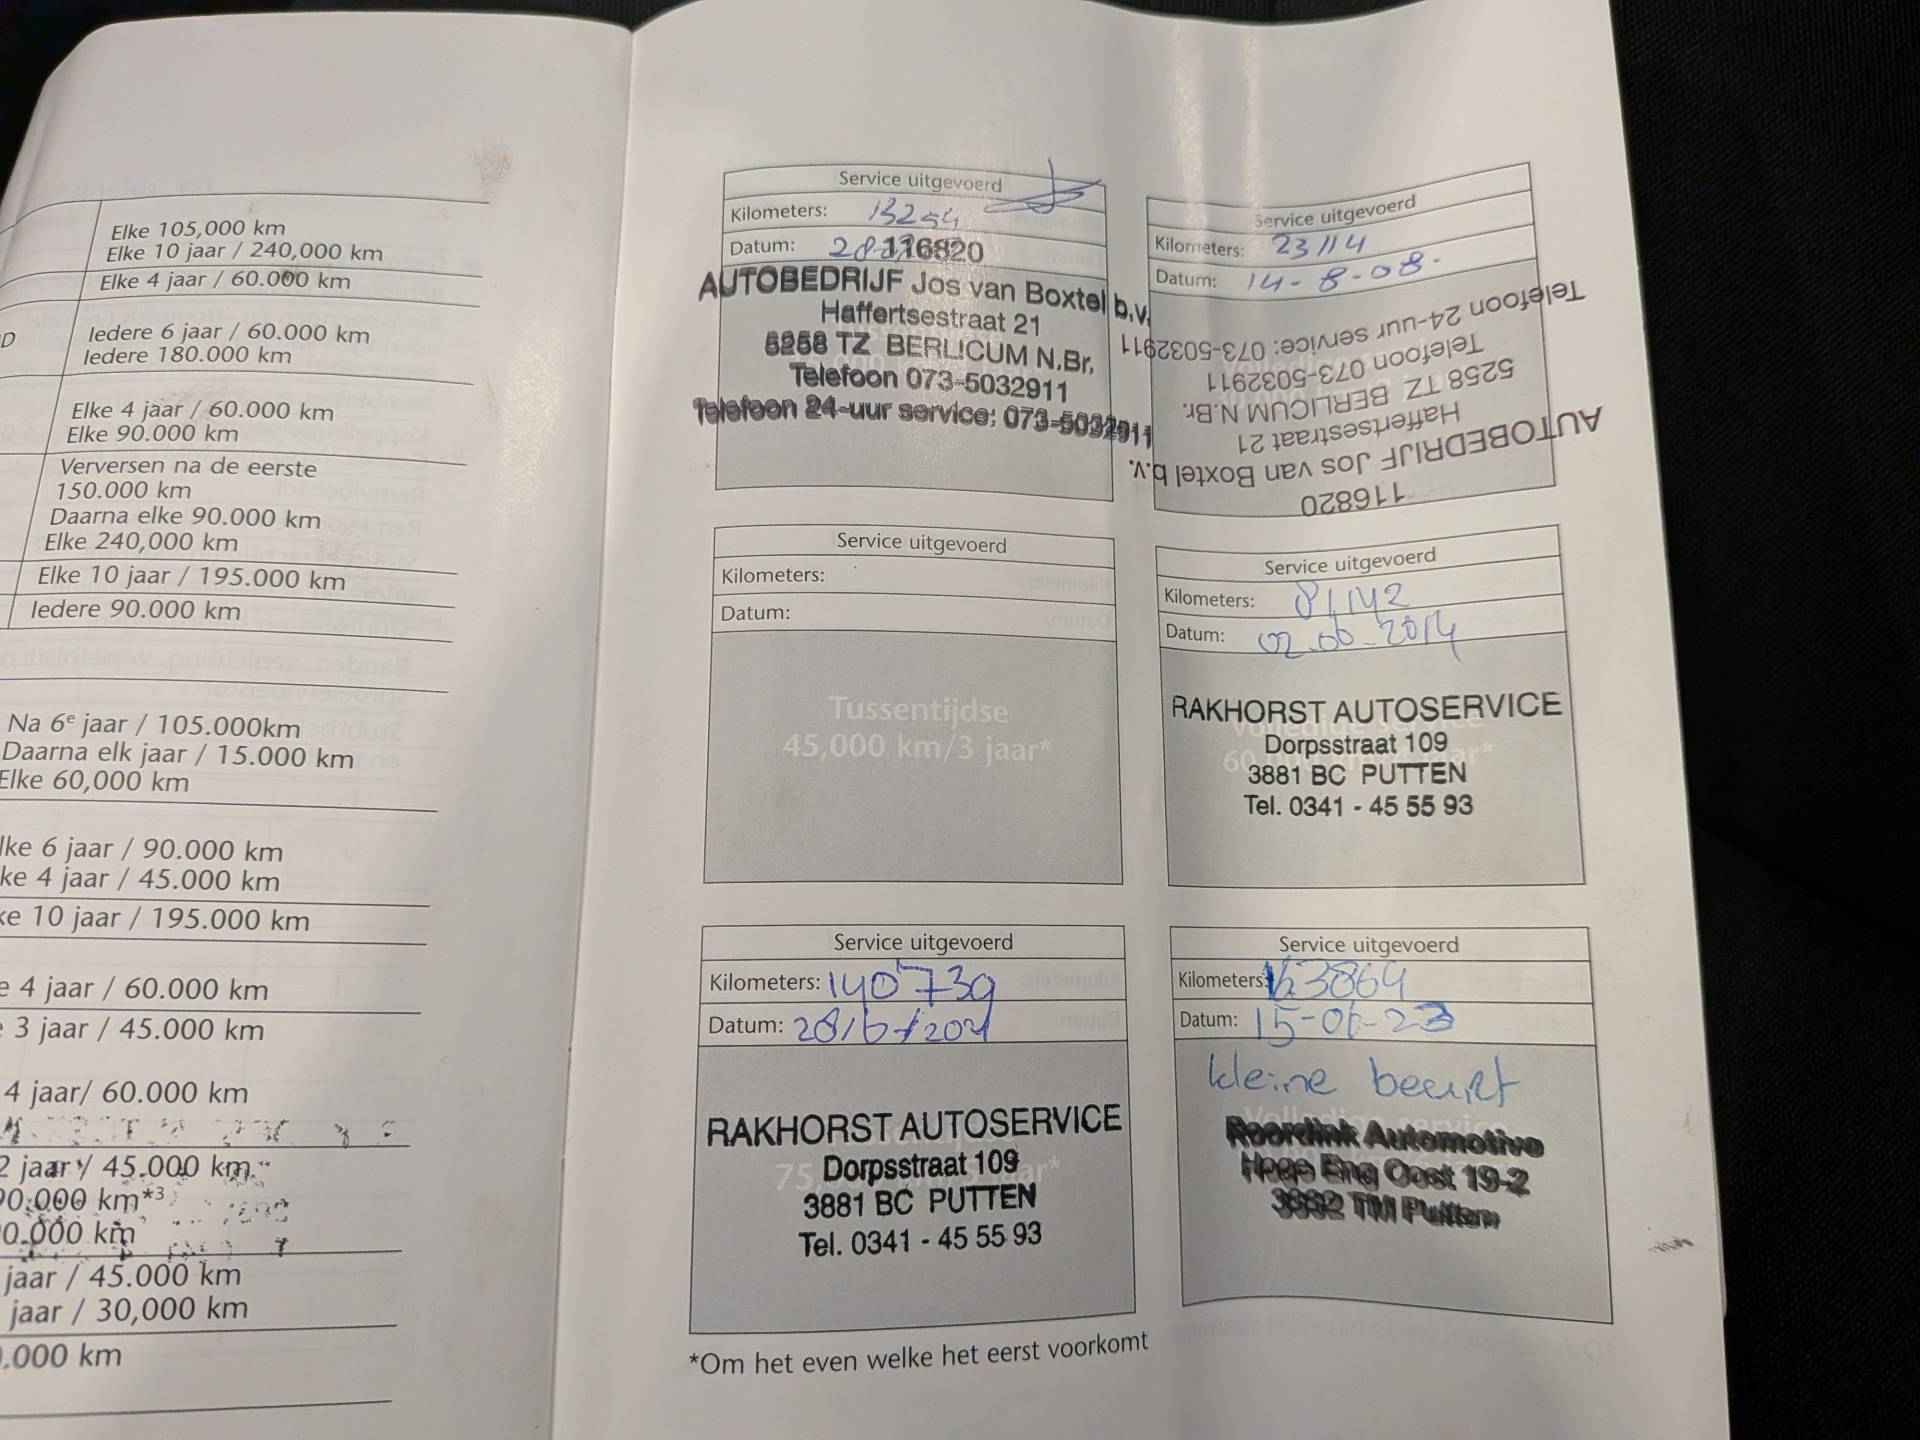 Elke 105,000 km
Elke 10 jaar / 240,000 km
Elke 4 jaar / 60.000 km
D
Iedere 6 jaar / 60.000 km
Iedere 180.000 km
Elke 4 jaar / 60.000 km
Elke 90.000 km
Verversen na de eerste
150.000 km
Daarna elke 90.000 km
Elke 240,000 km
Elke 10 jaar / 195.000 km
Iedere 90.000 km
Na 6e jaar / 105.000km
Daarna elk jaar / 15.000 km
Elke 60,000 km
lke 6 jaar / 90.000 km
ke 4 jaar / 45.000 km
ke 10 jaar / 195.000 km
e 4 jaar / 60.000 km
e 3 jaar / 45.000 km
4 jaar/ 60.000 km
2 jaar / 45.000 km
90.000 km*3
0.000 km
jaar / 45.000 km
jaar / 30,000 km
.000 km
Service uitgevoerd
Kilometers: 13254
Datum: 28
116820
AUTOBEDRIJF Jos van Boxtel b.v.
Haffertsestraat 21
5258 TZ BERLICUM N.Br.
Telefoon 073-5032911
Telefoon 24-uur service: 073-5032911
Service uitgevoerd
Kilometers: 23114
Datum: 14-8-08.
116820
AUTOBEDRIJF Jos van Boxtel b.v.
Haffertsestraat 21
5258 TZ BERLICUM N.Br.
Telefoon 073-5032911
Telefoon 24-uur service: 073-5032911
Service uitgevoerd
Kilometers:
Datum:
Tussentijdse
45,000 km/3 jaar*
Service uitgevoerd
Kilometers: 81142
Datum: 02-06-2014
RAKHORST AUTOSERVICE
Dorpsstraat 109
3881 BC PUTTEN
Tel. 0341 - 45 55 93
Service uitgevoerd
Kilometers: 140739
Datum: 28/6/2021
RAKHORST AUTOSERVICE
Dorpsstraat 109
3881 BC PUTTEN
Tel. 0341 - 45 55 93
Service uitgevoerd
Kilometers: 163864
Datum: 15-06-23
kleine beurt
Volledige service
Roordink Automotive
Hoge Eng Oost 19-2
3882 TM Putten
*Om het even welke het eerst voorkomt